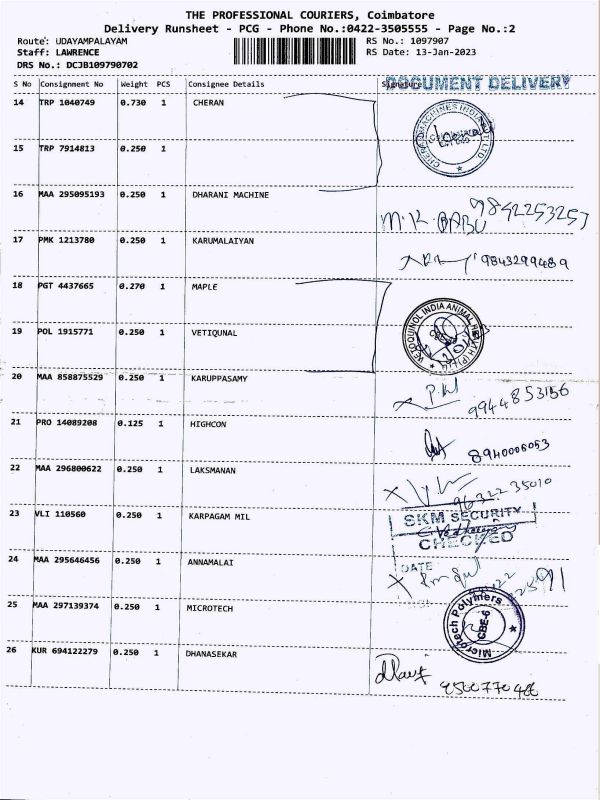 THE PROFESSIONAL COURIERS, Coimbatore
Delivery Runsheet - PCG - Phone No.:0422-3505555 - Page No.:2
Route: UDAYAMPALAYAM RS No.: 1097907
Staff: LAWRENCE RS Date: 13-Jan-2023
DRS No.: DCJB109790702
S No Consignment No Weight PCS Consignee Details Signature
DOCUMENT DELIVERY
14 TRP 1040749 0.730 1 CHERAN
15 TRP 7914813 0.250 1
16 MAA 295095193 0.250 1 DHARANI MACHINE
M.K.BABU 9842253257
17 PMK 1213780 0.250 1 KARUMALAIYAN
9843299489
18 PGT 4437665 0.270 1 MAPLE
19 POL 1915771 0.250 1 VETIQUNAL
VETOQUINOL INDIA ANIMAL HEALTH (P) LTD
20 MAA 858875529 0.250 1 KARUPPASAMY
9944853156
21 PRO 14089208 0.125 1 HIGHCON
8940006053
22 MAA 296800622 0.250 1 LAKSMANAN
96322 35010
23 VLI 110560 0.250 1 KARPAGAM MIL
SKM SECURITY
CHECKED
DATE
24 MAA 295646456 0.250 1 ANNAMALAI
25 MAA 297139374 0.250 1 MICROTECH
Microtech Polymers
CBE-6
26 KUR 694122279 0.250 1 DHANASEKAR